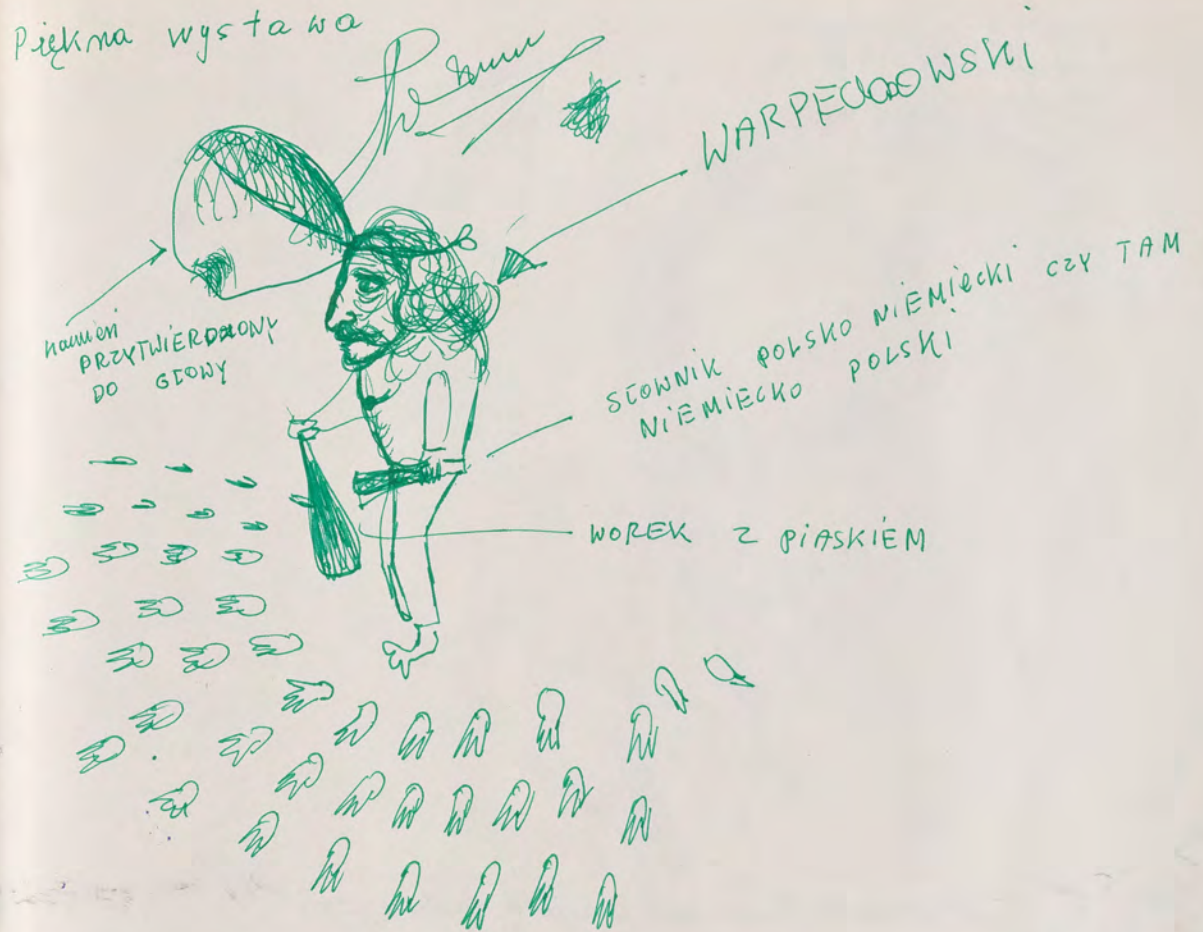 Piękna wystawa
WARPECHOWSKI
kamień
PRZYTWIERDZONY
DO GŁOWY
SŁOWNIK POLSKO NIEMIECKI CZY TAM
NIEMIECKO POLSKI
WOREK Z PIASKIEM